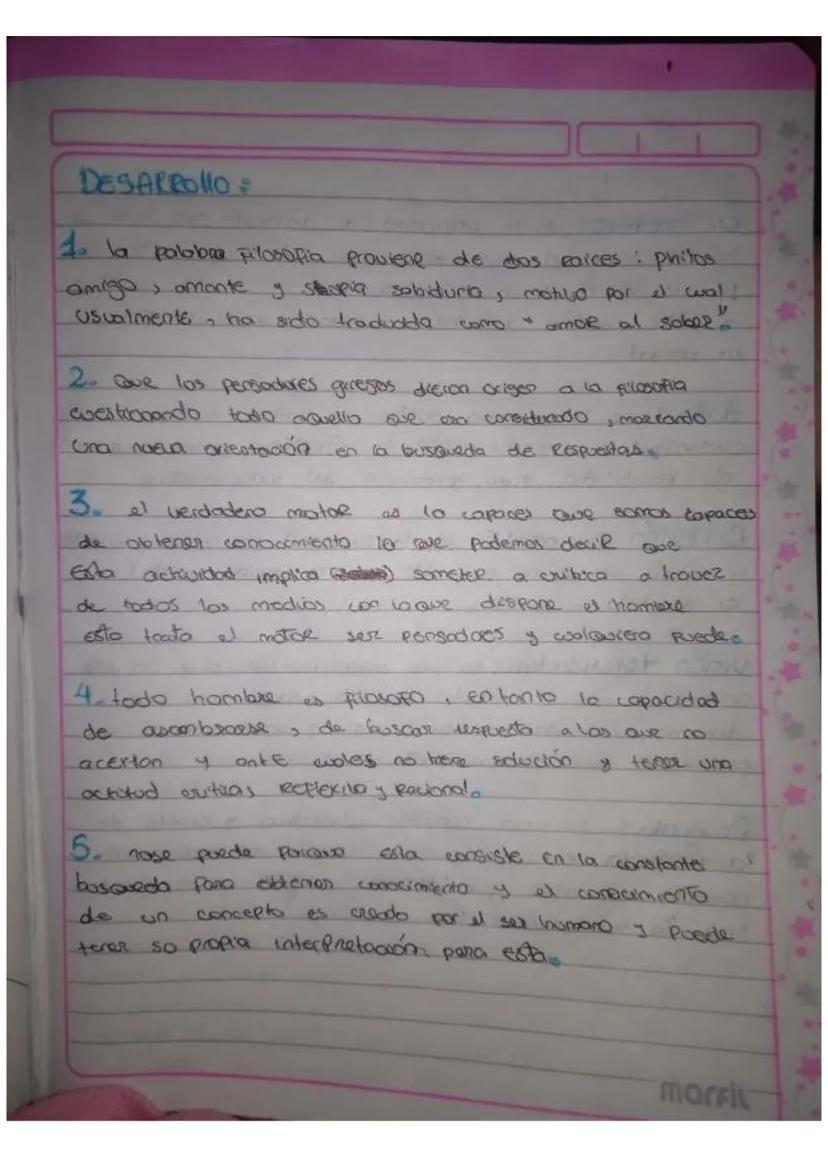 DESARROllO:
1. la palabra Filosofia proviene de dos raices : philos
amigo, amante y sofia sabiduria, motivo por el cual
usualmente, ha sido traducida como "amor al saber".
2. Que los pensadores griegos dieron origen a la filosofia
cuestionando todo aquello que era considerado, marcando
una nueva orientación en la busqueda de Respuestas.
3. el verdadero motor es la capaces que somos capaces
de obtener conocimiento lo que podemos decir que
Esta actividad implica someter a critica a travez
de todos los medios con lo que dispone el hombre
esto trata el motor ser pensadores y cualquiera puede.
4. todo hombre es filosofo, en tanto la capacidad
de asombrarse, de buscar respuesta a las que no
acertan y ante cuales no tiene solución y tener una
actitud criticas, Reflexilo y Racional.
5. nose puede porque esta consiste en la constante
busqueda para obtener conocimiento y el conocimiento
de un concepto es creado por el ser humano y puede
tener so propia interpretación para esta.
marfil